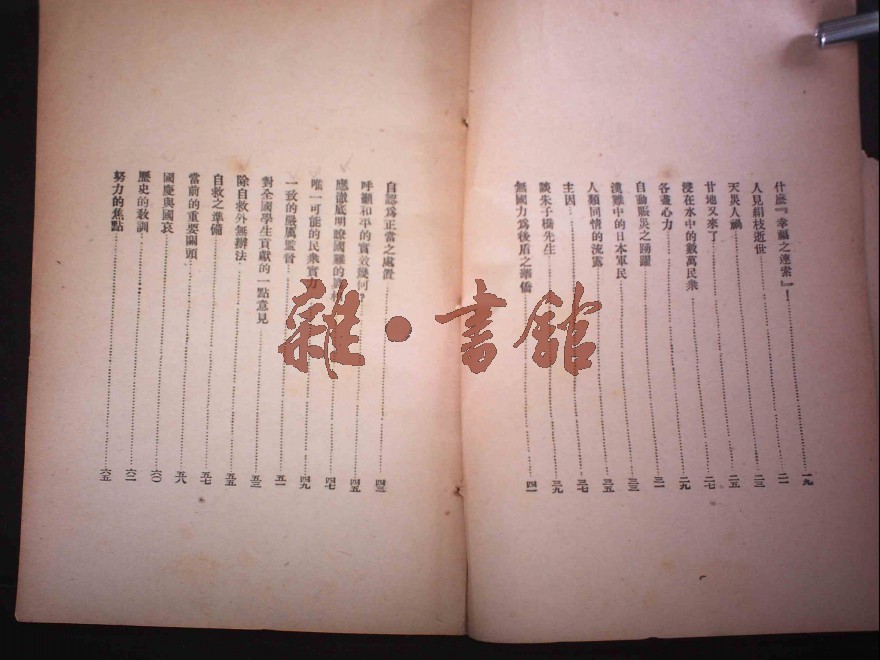 什麼『幸福之連索』！……一九
人見絹枝逝世……二一
天災人禍……二三
甘地又來了……二五
浸在水中的數萬民衆……二七
各盡心力……二九
自動賑災之踴躍……三一
漢難中的日本軍民……三三
人類同情的流露……三五
主因……三七
談朱子橋先生……三九
無國力爲後盾之華僑……四一
自認爲正當之處置……四三
呼籲和平的實效幾何？……四五
應澈底明瞭國難的……四七
唯一可能的民衆實力……四九
一致的嚴厲監督……五一
對全國學生貢獻的一點意見……五三
除自救外無辦法……五五
自救之準備……五七
當前的重要關頭……五八
國慶與國哀……六〇
歷史的教訓……六二
努力的焦點……六五
雜·書館